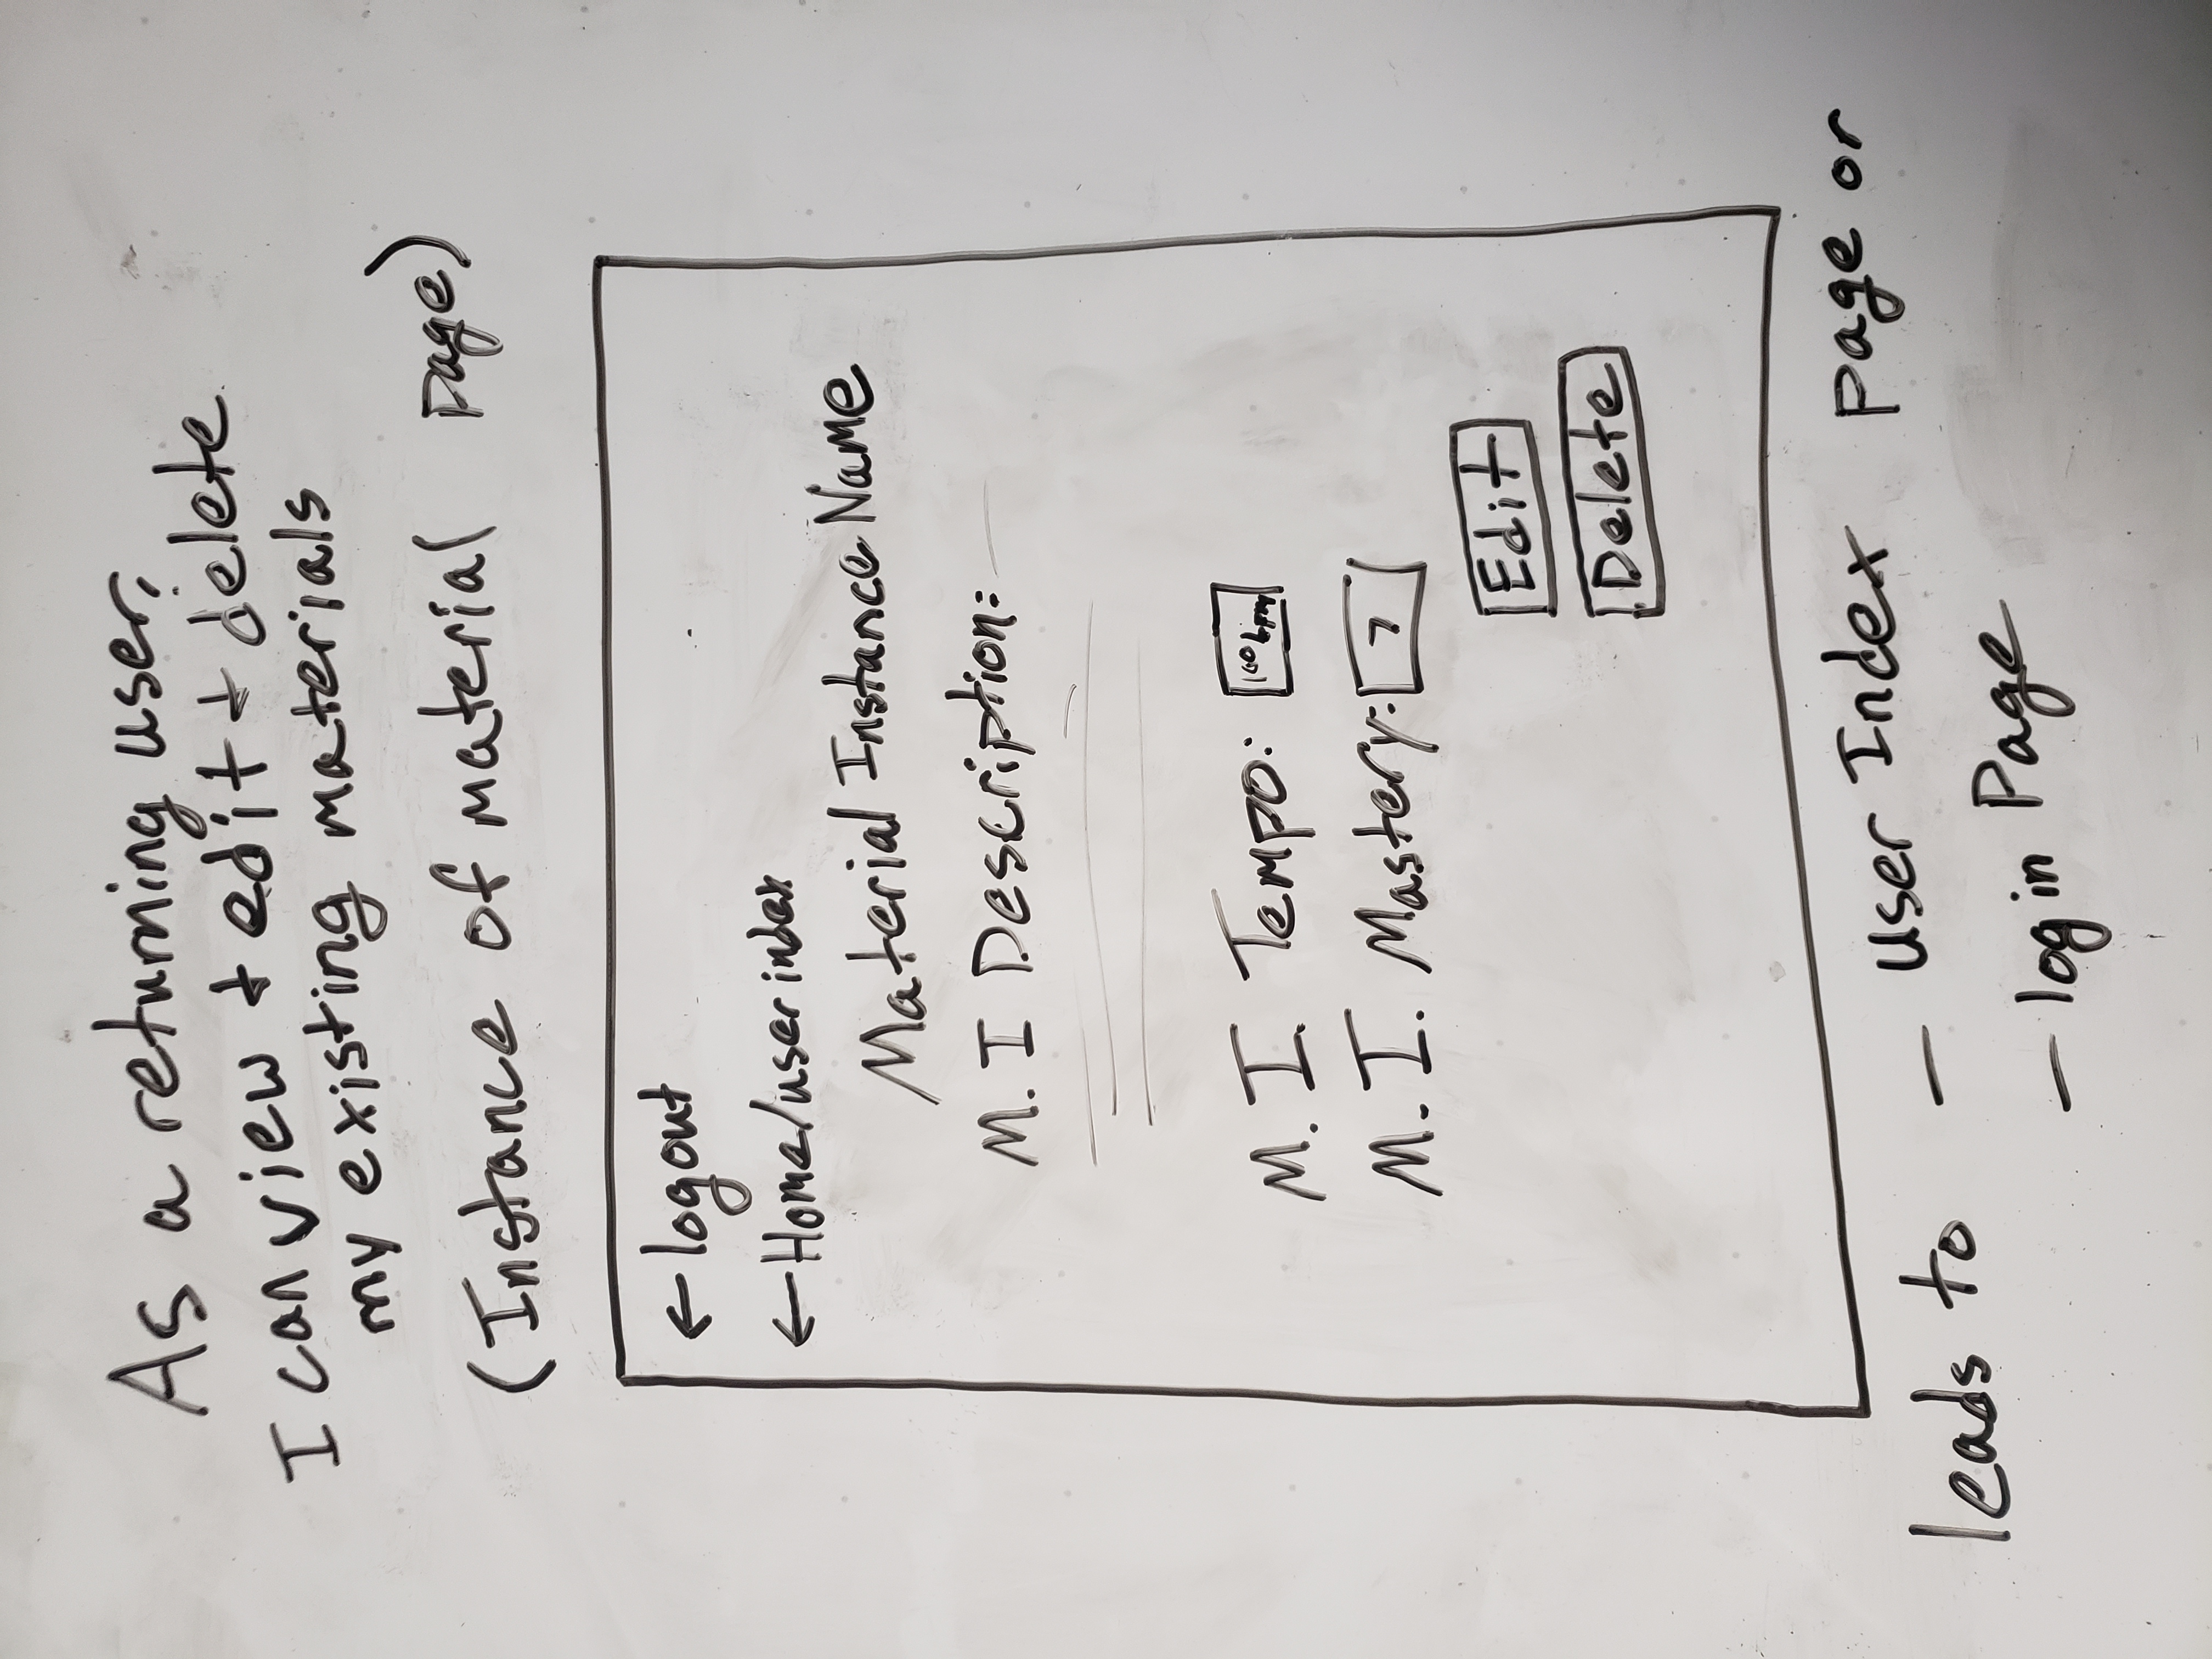 As a returning user,
I can view + edit + delete
my existing materials
(Instance of material page)
← logout
← Home/user index
Material Instance Name
M. I Description:
M. I. Tempo: bpm
M. I. Mastery: 7
Edit
Delete
leads to — user Index page or
— login Page